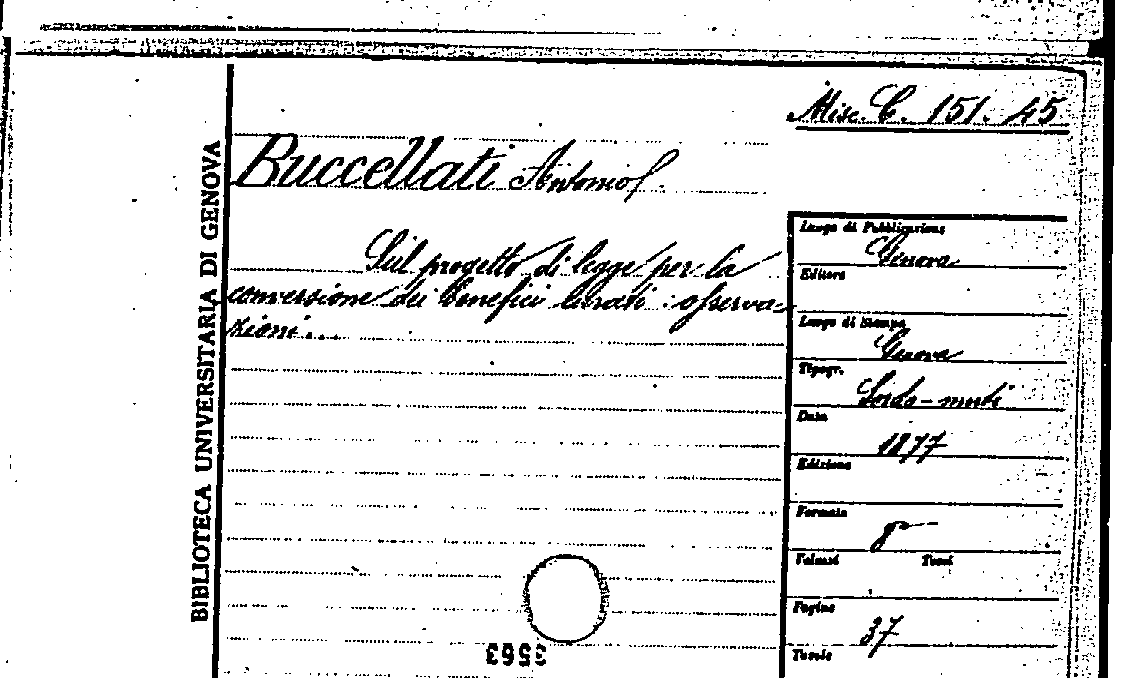 Misc. C. 151. 45
BIBLIOTECA UNIVERSITARIA DI GENOVA
Buccellati Antonio
Sul progetto di legge per la
conversione dei benefici curati: osserva-
zioni...
Luogo di Pubblicazione
Genova
Editore
Luogo di Stampa
Genova
Tipogr.
Sordo-muti
Data
1877
Edizione
Formato
8°
Volumi Tomi
Pagine
37
Tavole
3563